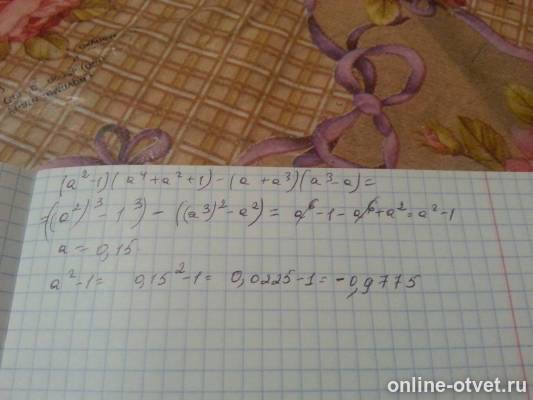 (a²-1)(a⁴+a²+1)-(a+a³)(a³-a)=
=((a²)³-1³)-((a³)²-a²)=a⁶-1-a⁶+a²=a²-1
a=0,15.
a²-1= 0,15²-1= 0,0225-1=-0,9775
online-otvet.ru